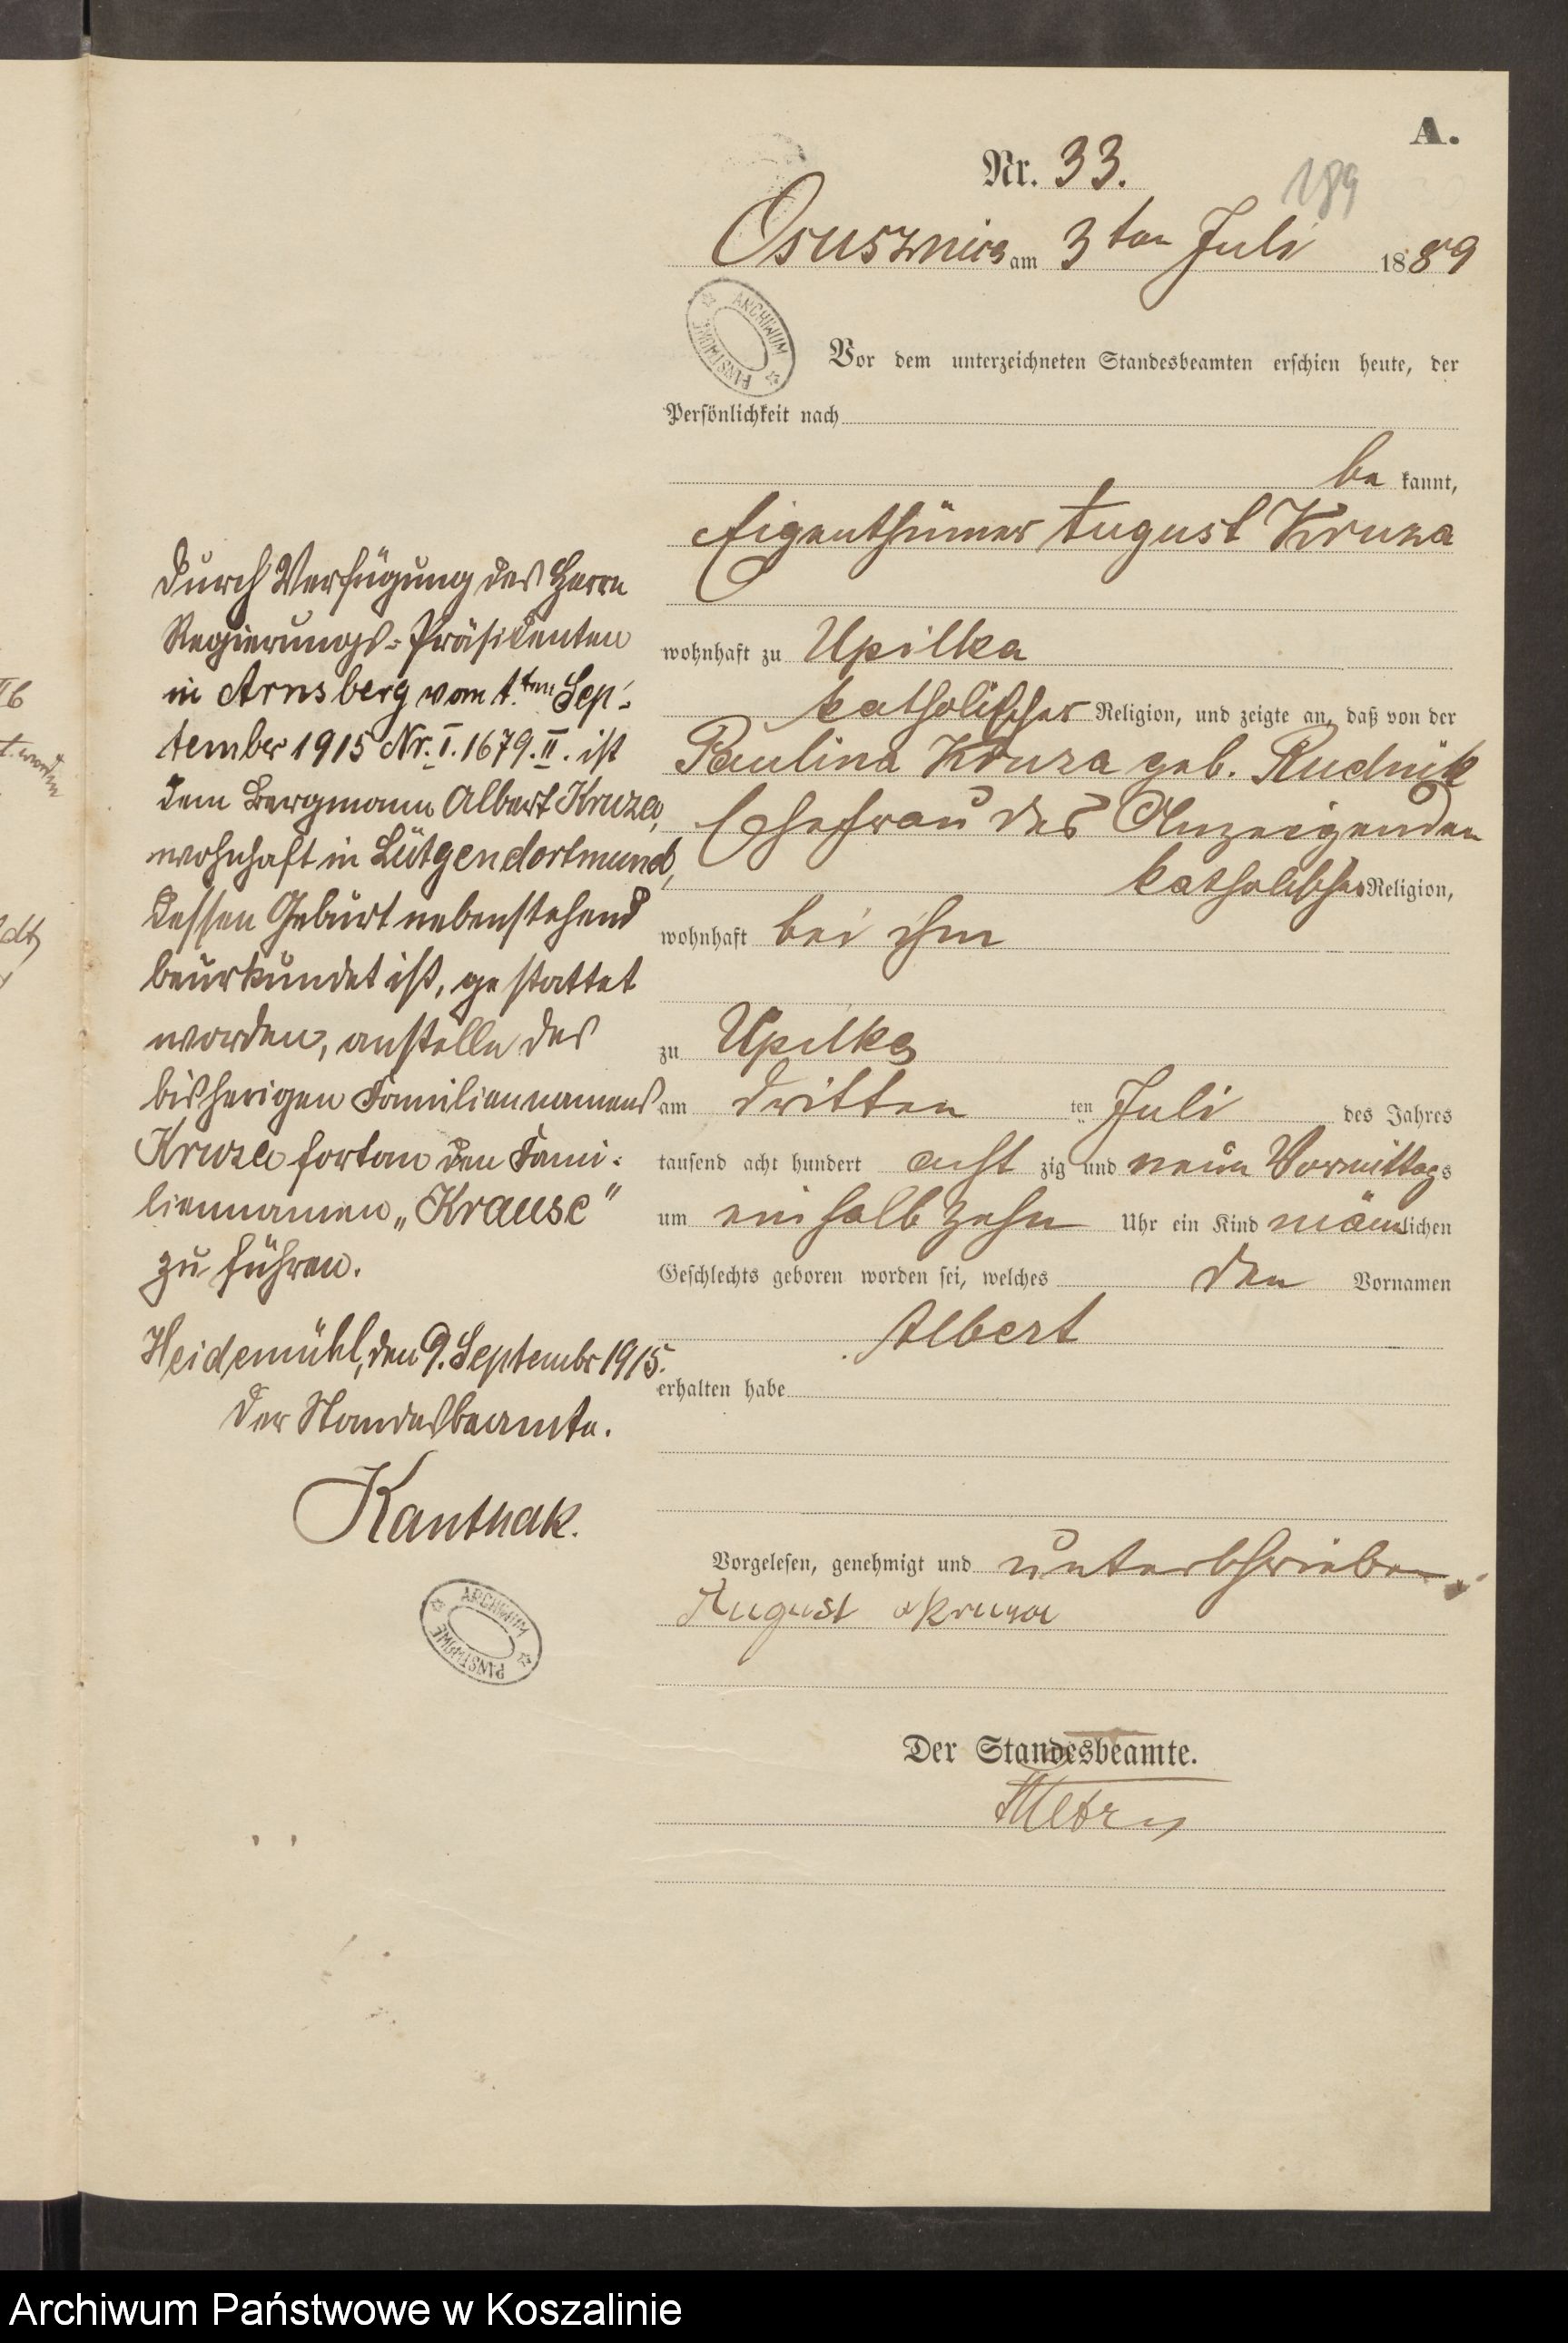 A.
Nr. 33.
189
Osusznica am 3ten Juli 1889
Vor dem unterzeichneten Standesbeamten erschien heute, der
Persönlichkeit nach
be kannt,
Eigenthümer August Kruza
wohnhaft zu Upilka
katholischer Religion, und zeigte an, daß von der
Paulina Kruza geb. Rudnik
Ehefrau des Anzeigenden
katholischer Religion,
wohnhaft bei ihm
zu Upilka
am dritten ten Juli des Jahres
tausend acht hundert acht zig und neun Vormittags
um ein halb zehn Uhr ein Kind männlichen
Geschlechts geboren worden sei, welches den Vornamen
Albert
erhalten habe
Vorgelesen, genehmigt und unterschrieben.
August Kruza
Der Standesbeamte.
Durch Verfügung des Herrn
Regierungs-Präsidenten
in Arnsberg vom 1.ten Sep-
tember 1915 Nr. I. 1679. II. ist
dem Bergmann Albert Kruza,
wohnhaft in Lütgendortmund,
dessen Geburt nebenstehend
beurkundet ist, gestattet
worden, anstelle des
bisherigen Familiennamens
Kruza fortan den Fami-
liennamen „Krause“
zu führen.
Heidemühl, den 9. Septembr 1915.
Der Standesbeamte.
Kanthak.
ARCHIWUM PAŃSTWOWE
ARCHIWUM PAŃSTWOWE
Archiwum Państwowe w Koszalinie